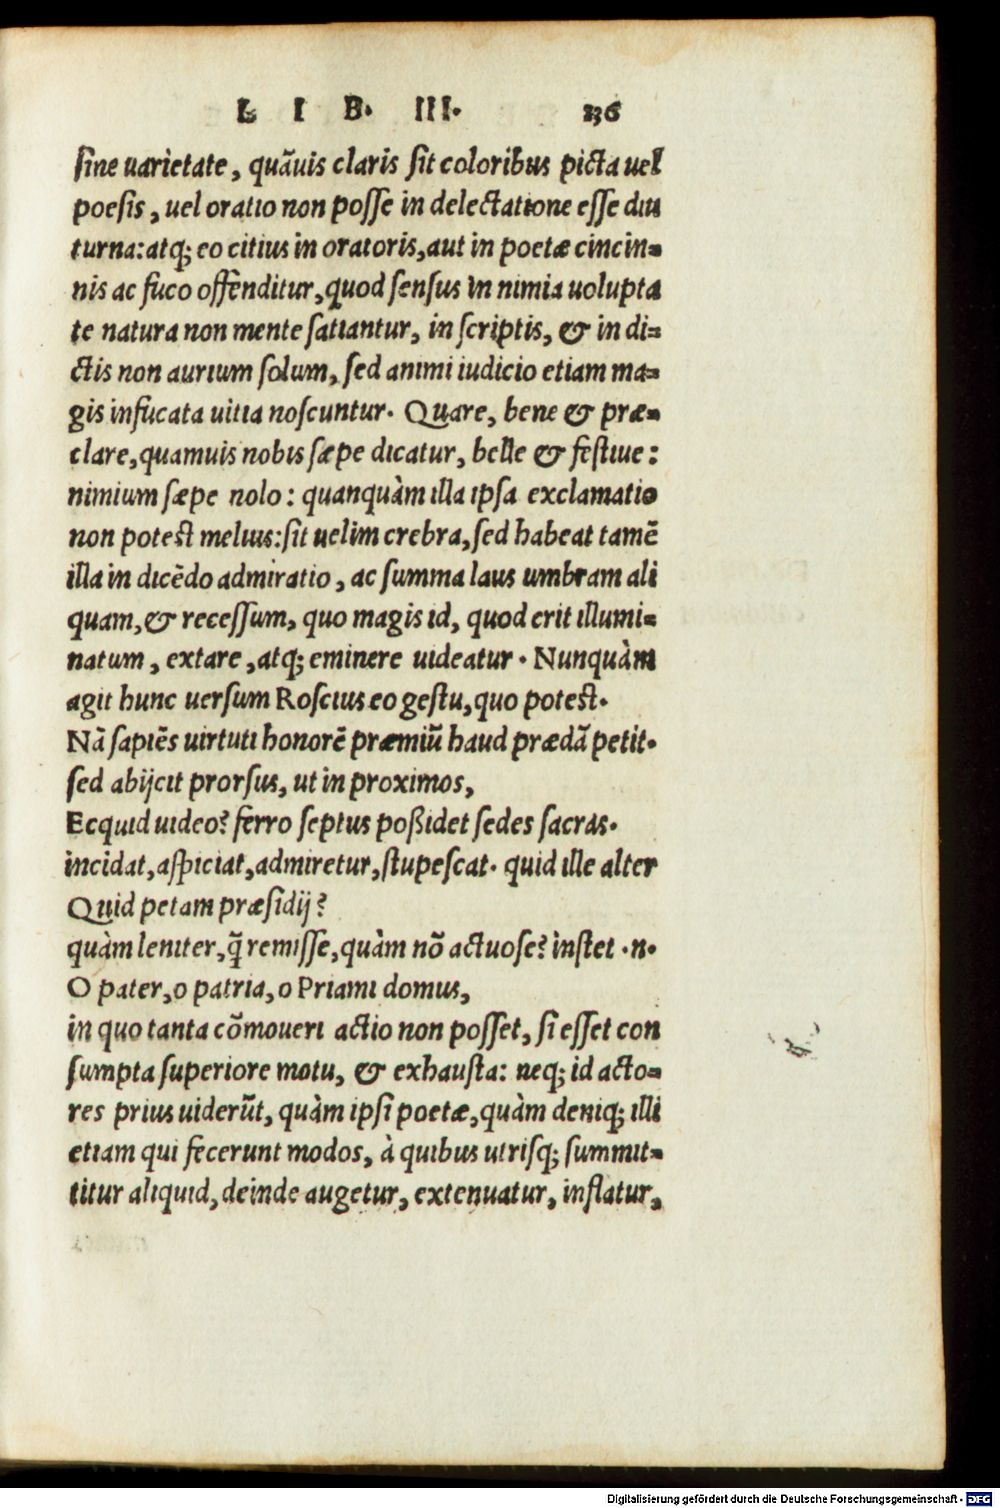 LIB. III. 236
sine uarietate, quāuis claris sit coloribus picta uel
poesis, uel oratio non posse in delectatione esse diu
turna: atq; eo citius in oratoris, aut in poetæ cincin-
nis ac fuco offenditur, quod sensus in nimia uolupta
te natura non mente satiantur, in scriptis, & in di-
ctis non aurium solum, sed animi iudicio etiam ma-
gis infucata uitia noscuntur. Quare, bene & præ-
clare, quamuis nobis sæpe dicatur, belle & festiue:
nimium sæpe nolo: quanquàm illa ipsa exclamatio
non potest melius: sit uelim crebra, sed habeat tamē
illa in dicēdo admiratio, ac summa laus umbram ali
quam, & recessum, quo magis id, quod erit illumi-
natum, extare, atq; eminere uideatur. Nunquàm
agit hunc uersum Roscius eo gestu, quo potest.
Nā sapiēs uirtuti honorē præmiū haud prædā petit.
sed abijcit prorsus, ut in proximos,
Ecquid uideo? ferro septus poßidet sedes sacras.
incidat, aspiciat, admiretur, stupescat. quid ille alter
Quid petam præsidij?
quàm leniter, q̄ remisse, quàm nō actuose? instet .n.
O pater, o patria, o Priami domus,
in quo tanta cōmoueri actio non posset, si esset con
sumpta superiore motu, & exhausta: neq; id acto-
res prius uiderūt, quàm ipsi poetæ, quàm deniq; illi
etiam qui fecerunt modos, à quibus utrisq; summit-
titur aliquid, deinde augetur, extenuatur, inflatur,
Digitalisierung gefördert durch die Deutsche Forschungsgemeinschaft - DFG